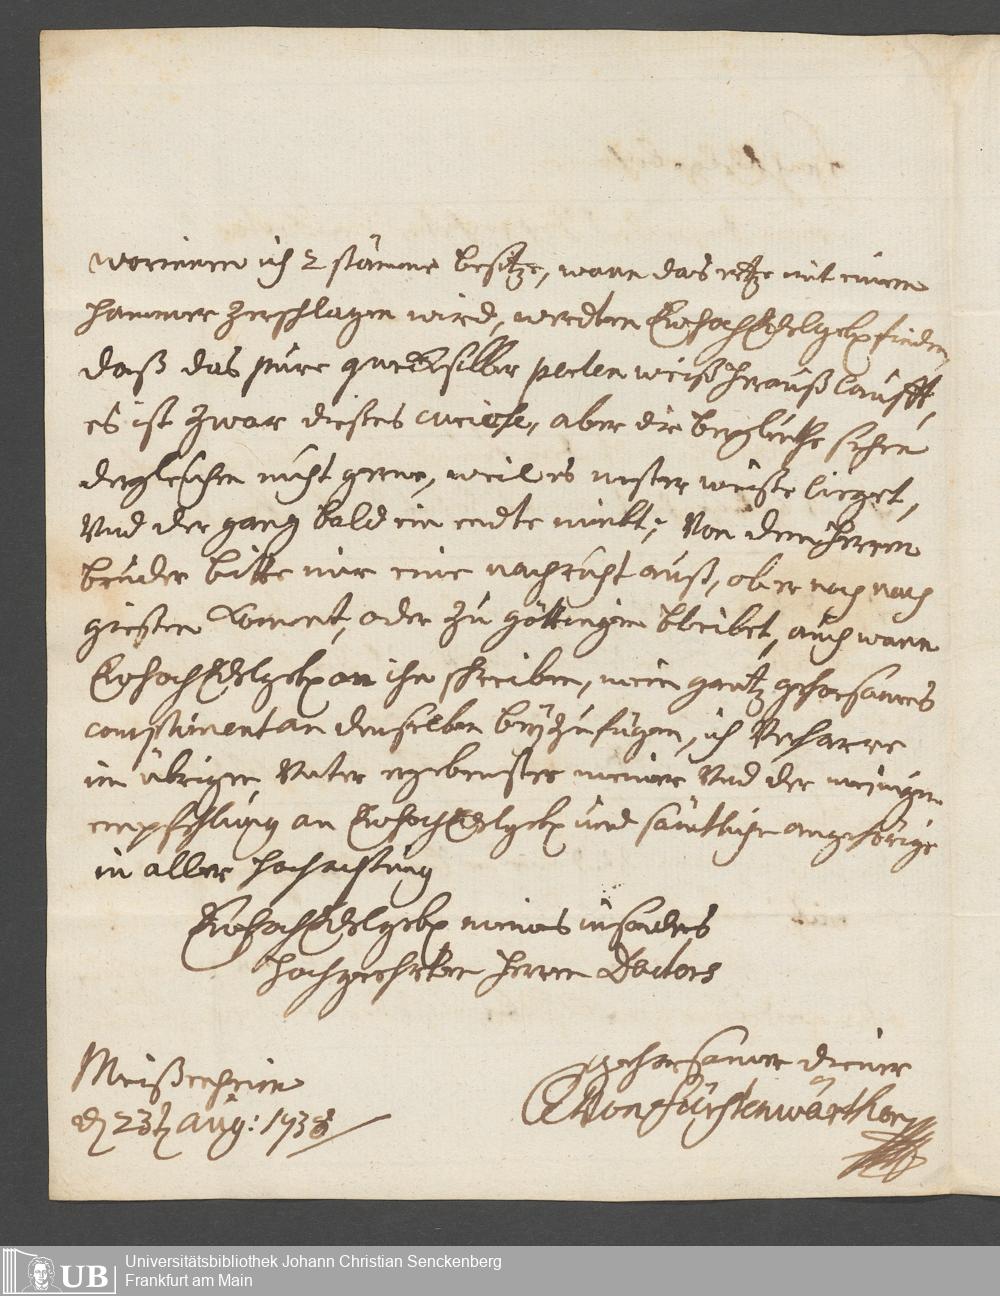 worinnen ich 2 stämme besitze, wann das ertze mit einem
hammer zerschlagen wird, werdten EwhochEdelgeb finden,
daß das pure quecksilber perlen weiß herauß laufft,
es ist zwar dießes curieuse, aber die bergleuthe sehen
dergleichen nicht gerne, weil es nester weiße lieget,
Und der gang bald ein endte nimbt; Von dem Herren
bruder bitte mir eine nachricht auß, ob er noch nach
gießen kommt, oder zu göttingen bleibet, auch wann
EwhochEdelgeb an ihn schreiben, mein gantz gehorsames
compliment an denselben beyzufügen, ich Verharre
im übrigen Unter ergebenster meiner Und der meinigen
empfehlung an EwhochEdelgeb und sämtliche angehörige
in aller hochachtung
EwhochEdelgeb meines insonders
hochgeehrten Herren Doctors
Meißenheim
d 23t aug: 1738
gehorsamer diener
Von fürstenwärther
Universitätsbibliothek Johann Christian Senckenberg
Frankfurt am Main
UB